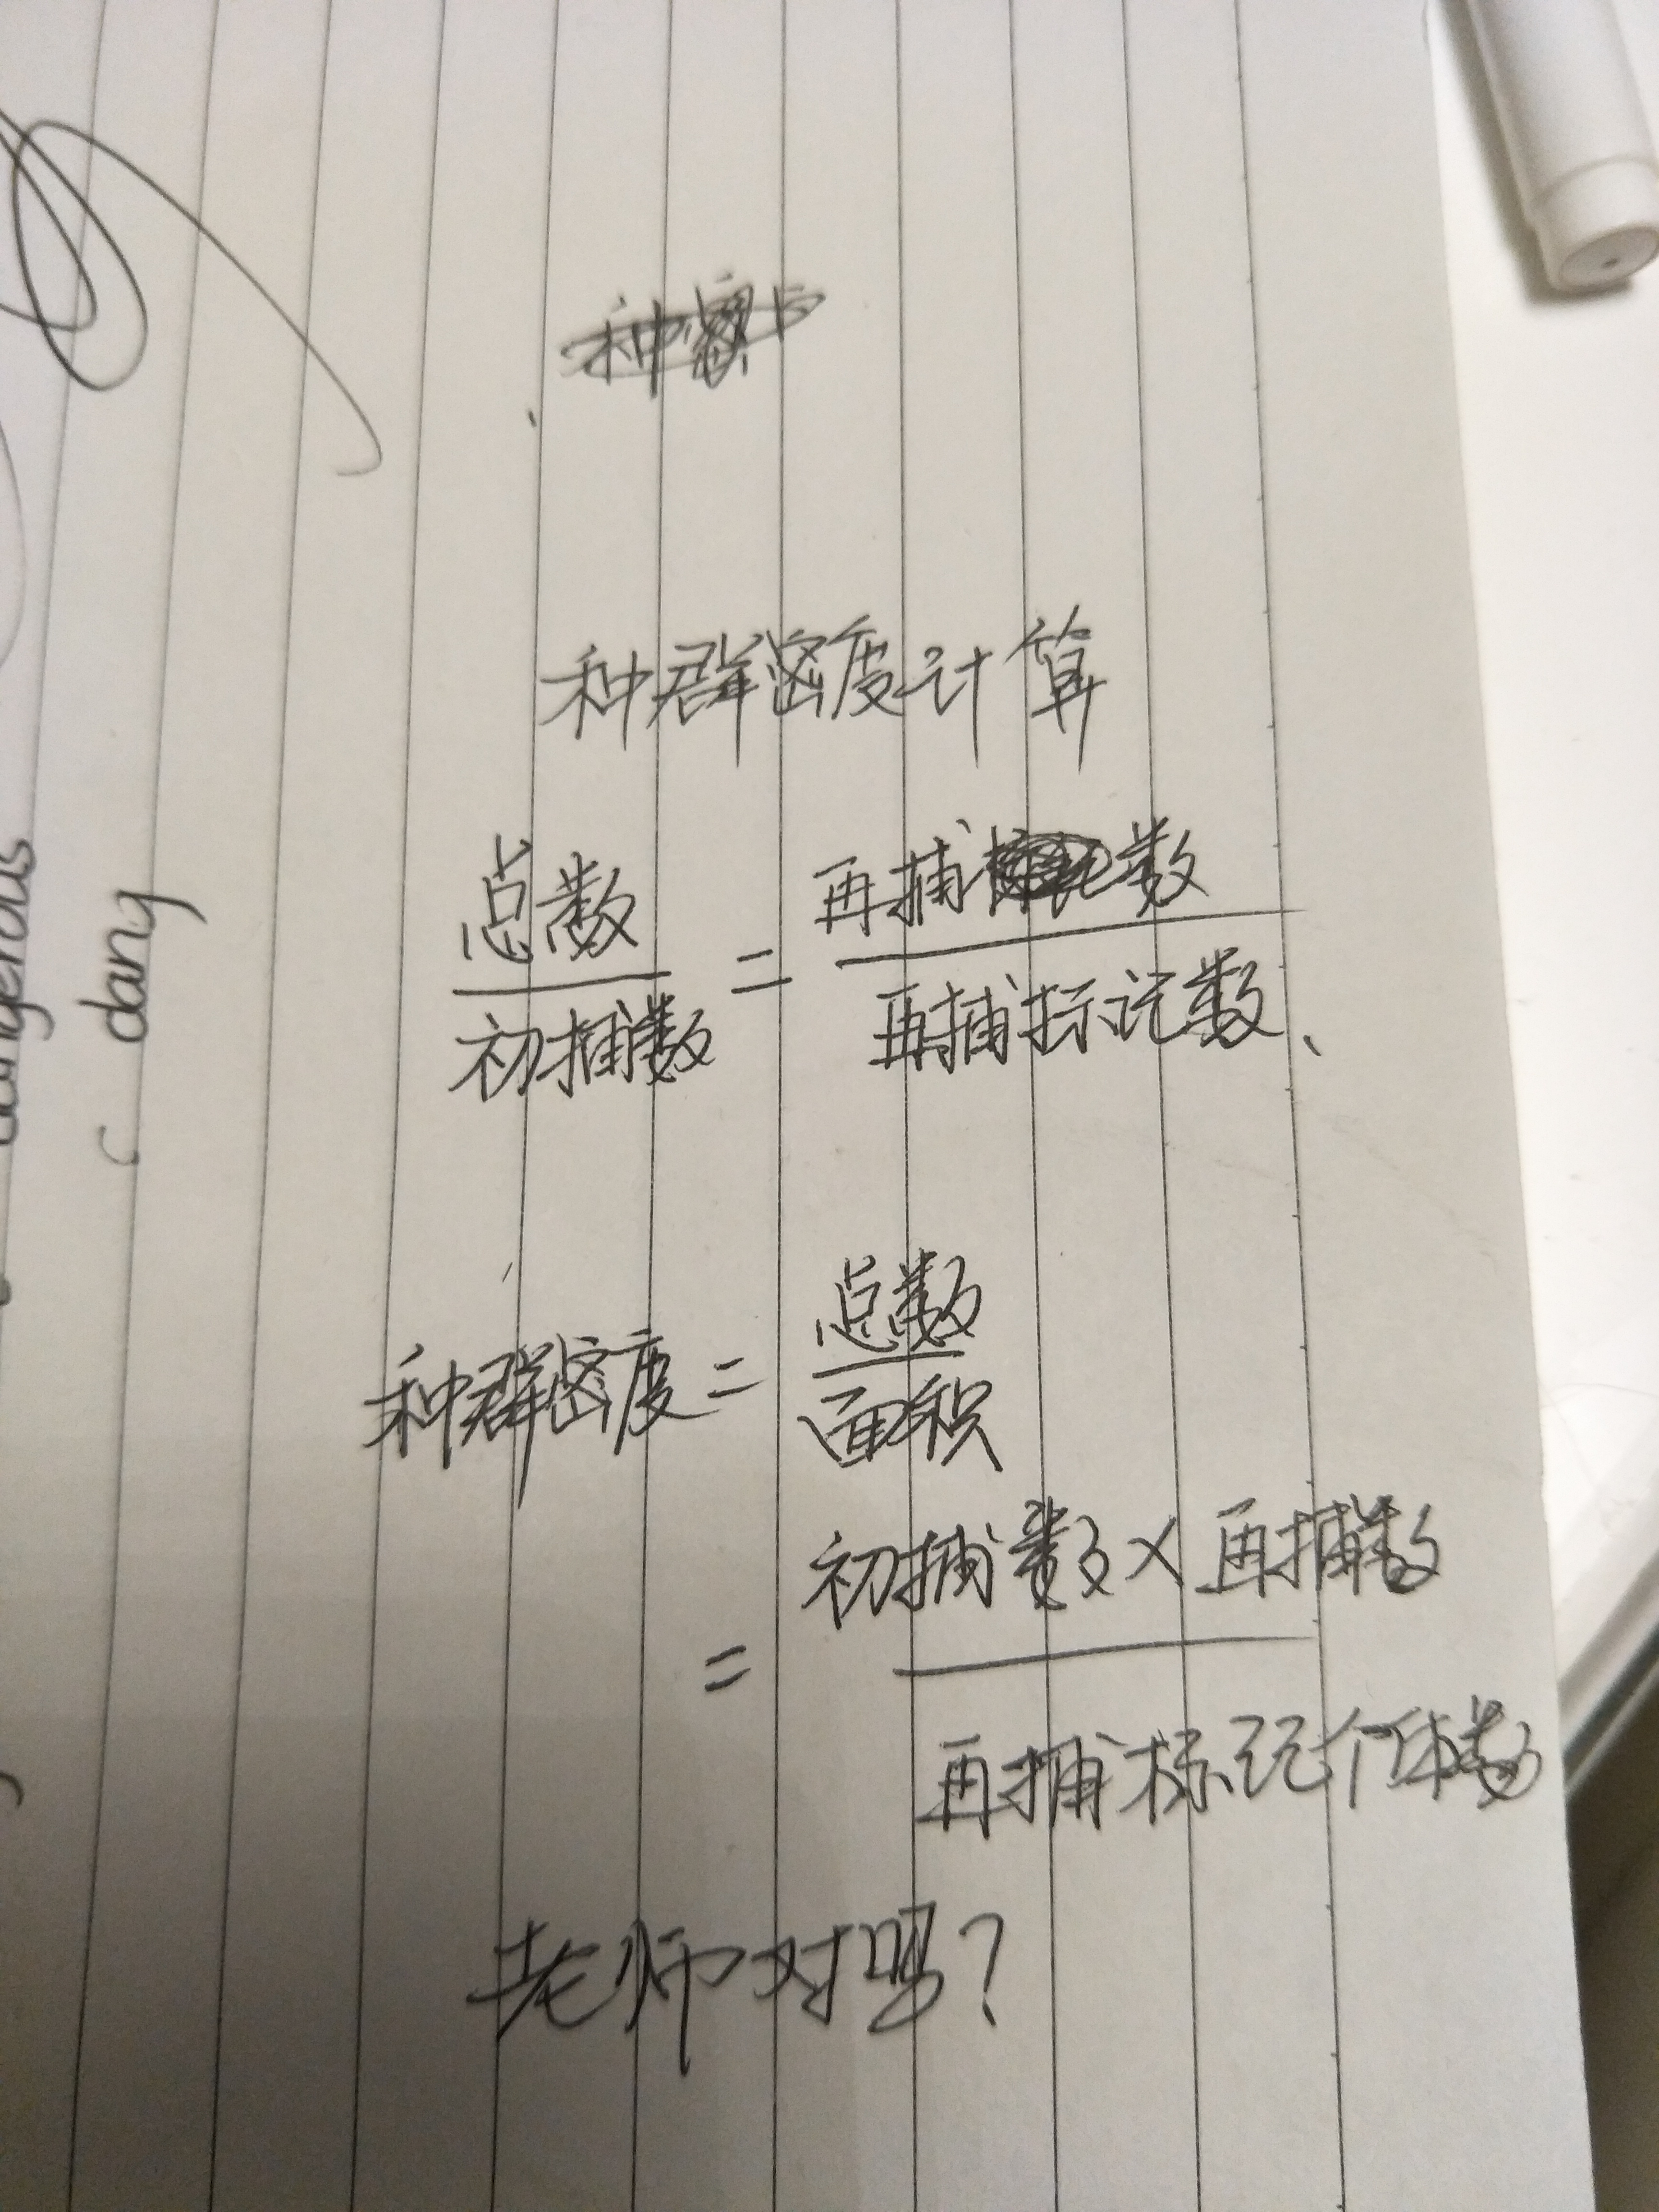 种群密度计算
总数 = 再捕数
初捕数 再捕标记数、
种群密度 = 总数
面积
= 初捕数×再捕数
再捕标记个体数
老师对吗?
dangerous
dang